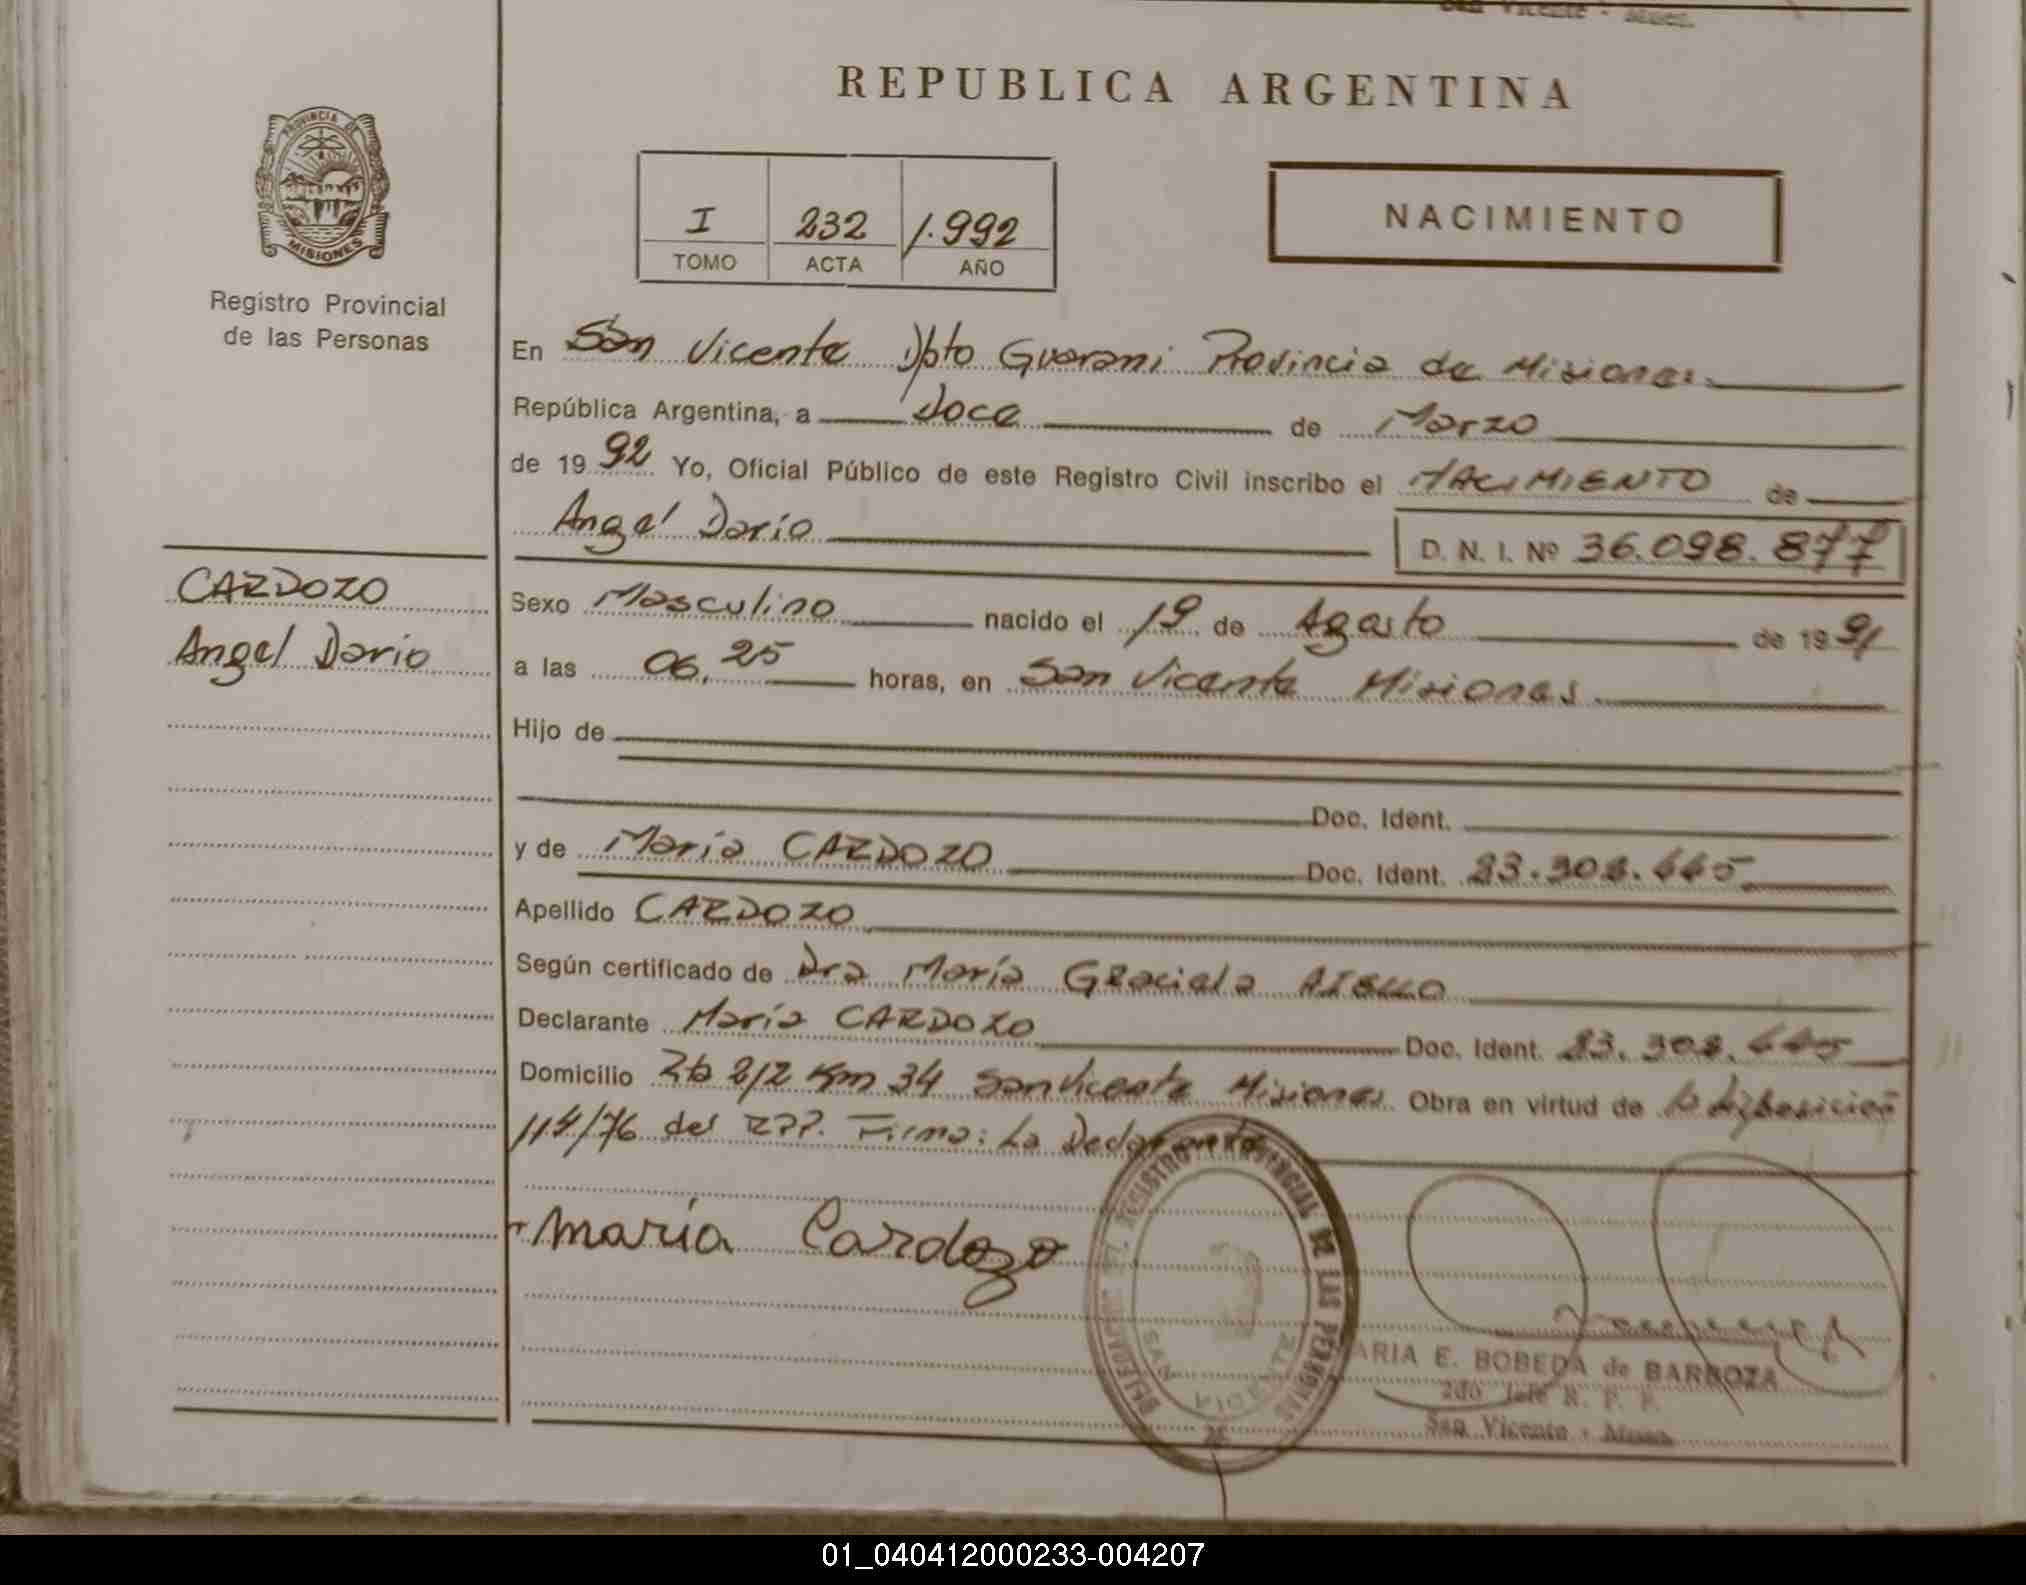 San Vicente - Mnes.
REPUBLICA ARGENTINA
PROVINCIA DE
MISIONES
Registro Provincial
de las Personas
I 232 1.992
TOMO ACTA AÑO
NACIMIENTO
En San Vicente Dpto Guarani Provincia de Misiones
República Argentina, a Doce de Marzo
de 1992 Yo, Oficial Público de este Registro Civil inscribo el NACIMIENTO de
Angel Darío D. N. I. Nº 36.098.877
CARDOZO
Angel Dario
Sexo Masculino nacido el 19 de Agosto de 1991
a las 06,25 horas, en San Vicente Misiones
Hijo de
Doc. Ident.
y de María CARDOZO Doc. Ident. 23.308.445
Apellido CARDOZO
Según certificado de Dra María Graciela AIELLO
Declarante María CARDOZO Doc. Ident. 23.308.445
Domicilio Km 34 San Vicente Misiones Obra en virtud de la disposición
114/76 del RPP. Firma: La Declarante
María Cardozo
DELEGACION DEL REGISTRO PROVINCIAL DE LAS PERSONAS
SAN VICENTE
ARIA E. BOBEDA de BARBOZA
2do. Jefe R. P. P.
San Vicente - Mnes.
01_040412000233-004207